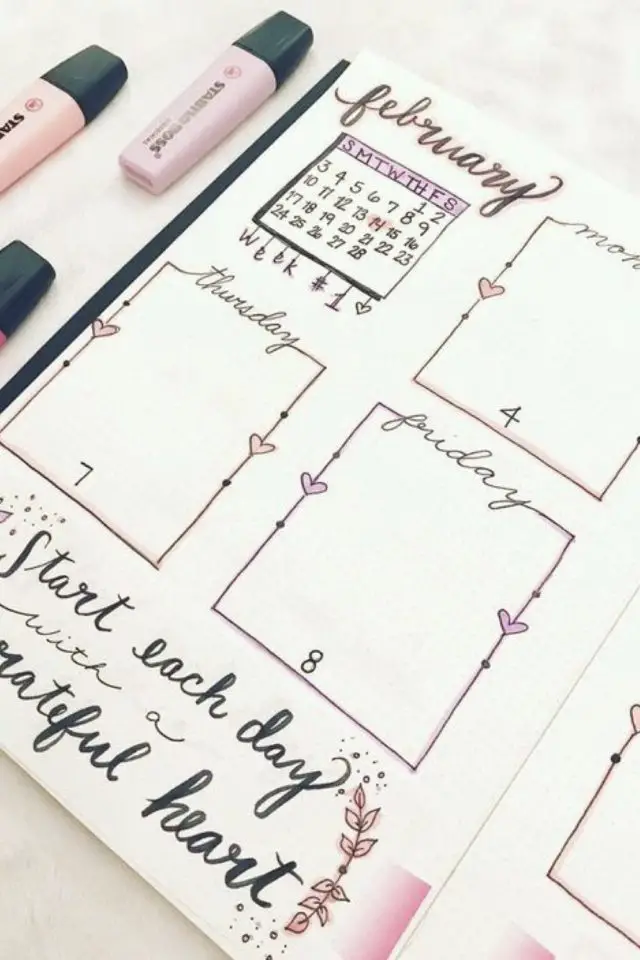 STABILO BOSS
ORIGINAL
STA
february
S M T W TH F S
1 2
3 4 5 6 7 8 9
10 11 12 13 14 15 16
17 18 19 20 21 22 23
24 25 26 27 28
Week #1
mon
4
thursday
7
friday
8
Start each day
with a
rateful heart